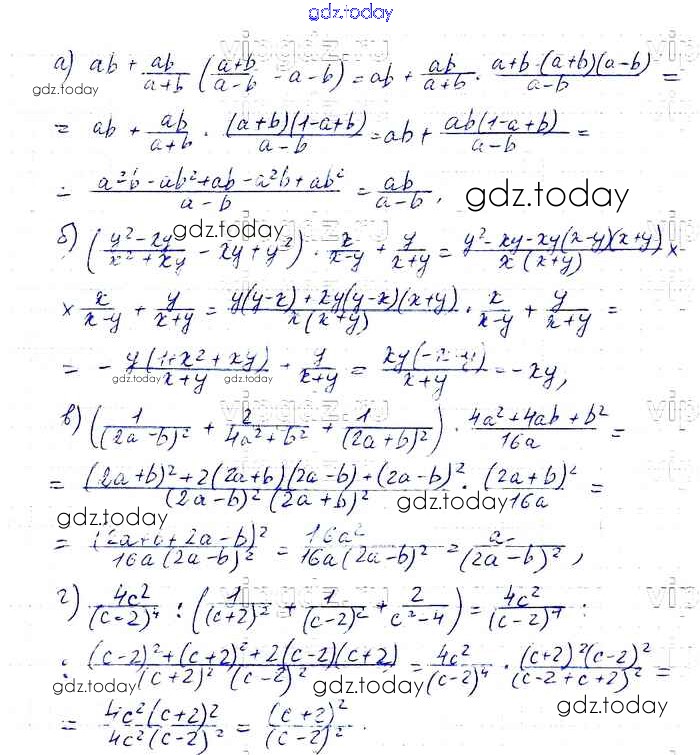 gdz.today
а) ab + ab/(a+b) ((a+b)/(a-b) - a - b) = ab + ab/(a+b) · (a+b-(a+b)(a-b))/(a-b) =
gdz.today
= ab + ab/(a+b) · (a+b)(1-a+b)/(a-b) = ab + ab(1-a+b)/(a-b) =
= (a²b - ab² + ab - a²b + ab²)/(a-b) = ab/(a-b),
gdz.today
gdz.today
б) ((y² - xy)/(x² + xy) - xy + y²) · x/(x-y) + y/(x+y) = (y² - xy - xy(x-y)(x+y))/(x(x+y)) ×
× x/(x-y) + y/(x+y) = (y(y-x) + xy(y-x)(x+y))/(x(x+y)) · x/(x-y) + y/(x+y) =
= - y(1+x²+xy)/(x+y) + y/(x+y) = xy(-x-y)/(x+y) = -xy,
gdz.today
gdz.today
в) (1/(2a-b)² + 2/(4a²+b²) + 1/(2a+b)²) · (4a² + 4ab + b²)/16a =
= ((2a+b)² + 2(2a+b)(2a-b) + (2a-b)²)/((2a-b)²(2a+b)²) · (2a+b)²/16a =
gdz.today
gdz.today
= (2a+b+2a-b)²/(16a(2a-b)²) = 16a²/(16a(2a-b)²) = a/(2a-b)²,
г) 4c²/(c-2)⁴ : (1/(c+2)² + 1/(c-2)² + 2/(c²-4)) = 4c²/(c-2)⁴ :
: ((c-2)² + (c+2)² + 2(c-2)(c+2))/((c+2)²(c-2)²) = 4c²/(c-2)⁴ · (c+2)²(c-2)²/(c-2+c+2)² =
gdz.today
gdz.today
= 4c²(c+2)²/(4c²(c-2)²) = (c+2)²/(c-2)².
gdz.today